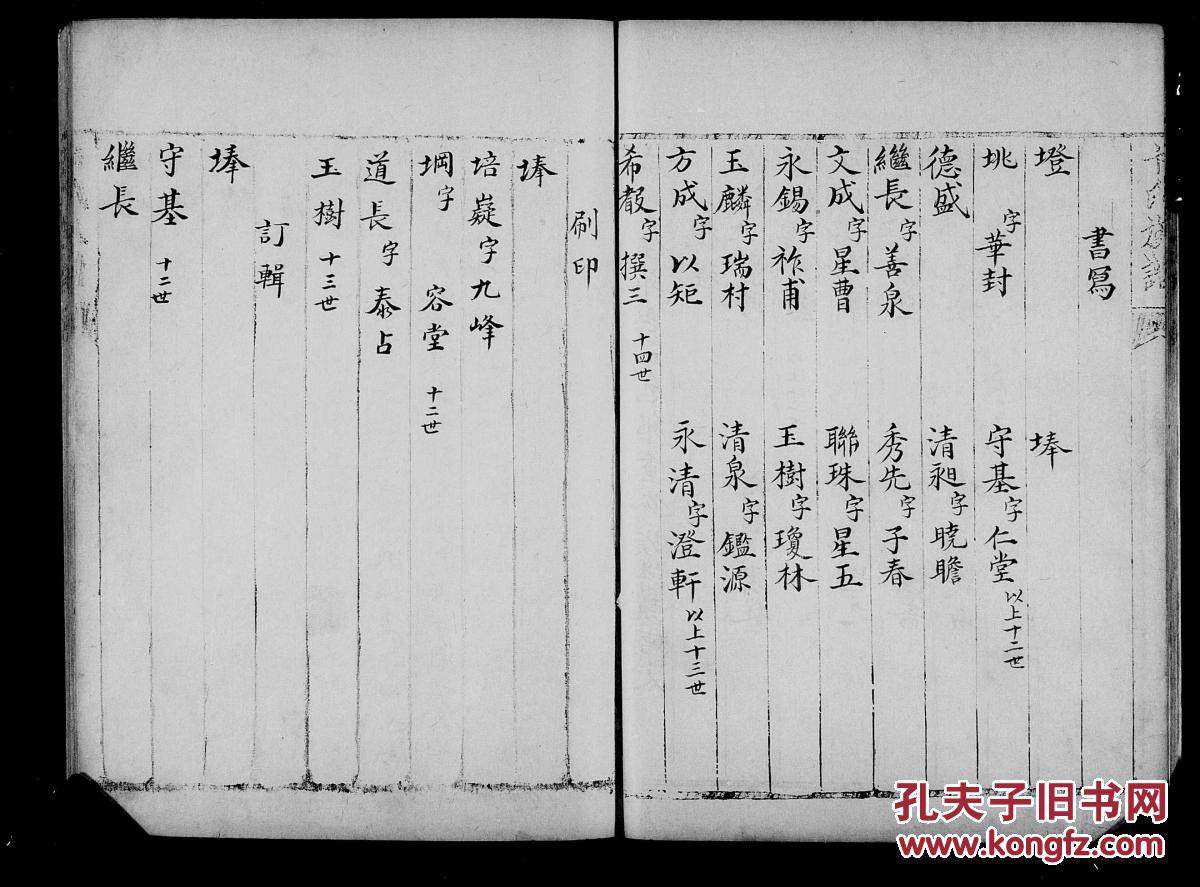 書寫
墱　埲
垗字華封　守基字仁堂以上十二世
德盛　清昶字曉瞻
繼長字善泉　秀先字子春
文成字星曹　聯珠字星五
永錫字祚甫　玉樹字瓊林
玉麟字瑞村　清泉字鑑源
方成字以矩　永清字澄軒以上十三世
希嗀字撰三　十四世
刷印
埲
培嶷字九峰
堈字容堂　十二世
道長字泰占
玉樹　十三世
訂輯
埲
守基　十二世
繼長
孔夫子旧书网
www.kongfz.com